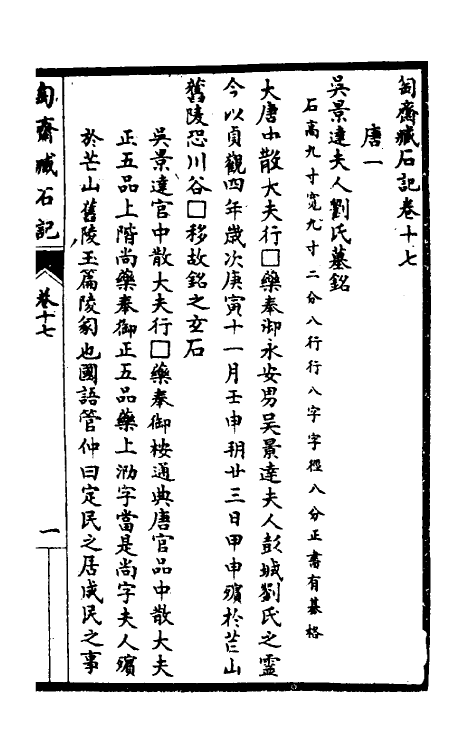 匋齋臧石記卷十七
唐一
吳景達夫人劉氏墓銘
石高九寸寬九寸二分八行行八字字徑八分正書有棊格
大唐中散大夫行□藥奉御永安男吳景達夫人彭城劉氏之靈
今以貞觀四年歲次庚寅十一月壬申朔廿三日甲申殯於芒山
舊陵恐川谷□移故銘之玄石
吳景達官中散大夫行□藥奉御桉通典唐官品中散大夫
正五品上階尚藥奉御正五品藥上泐字當是尚字夫人殯
於芒山舊陵玉篇陵冢也國語管仲曰定民之居成民之事
匋齋臧石記
卷十七
一